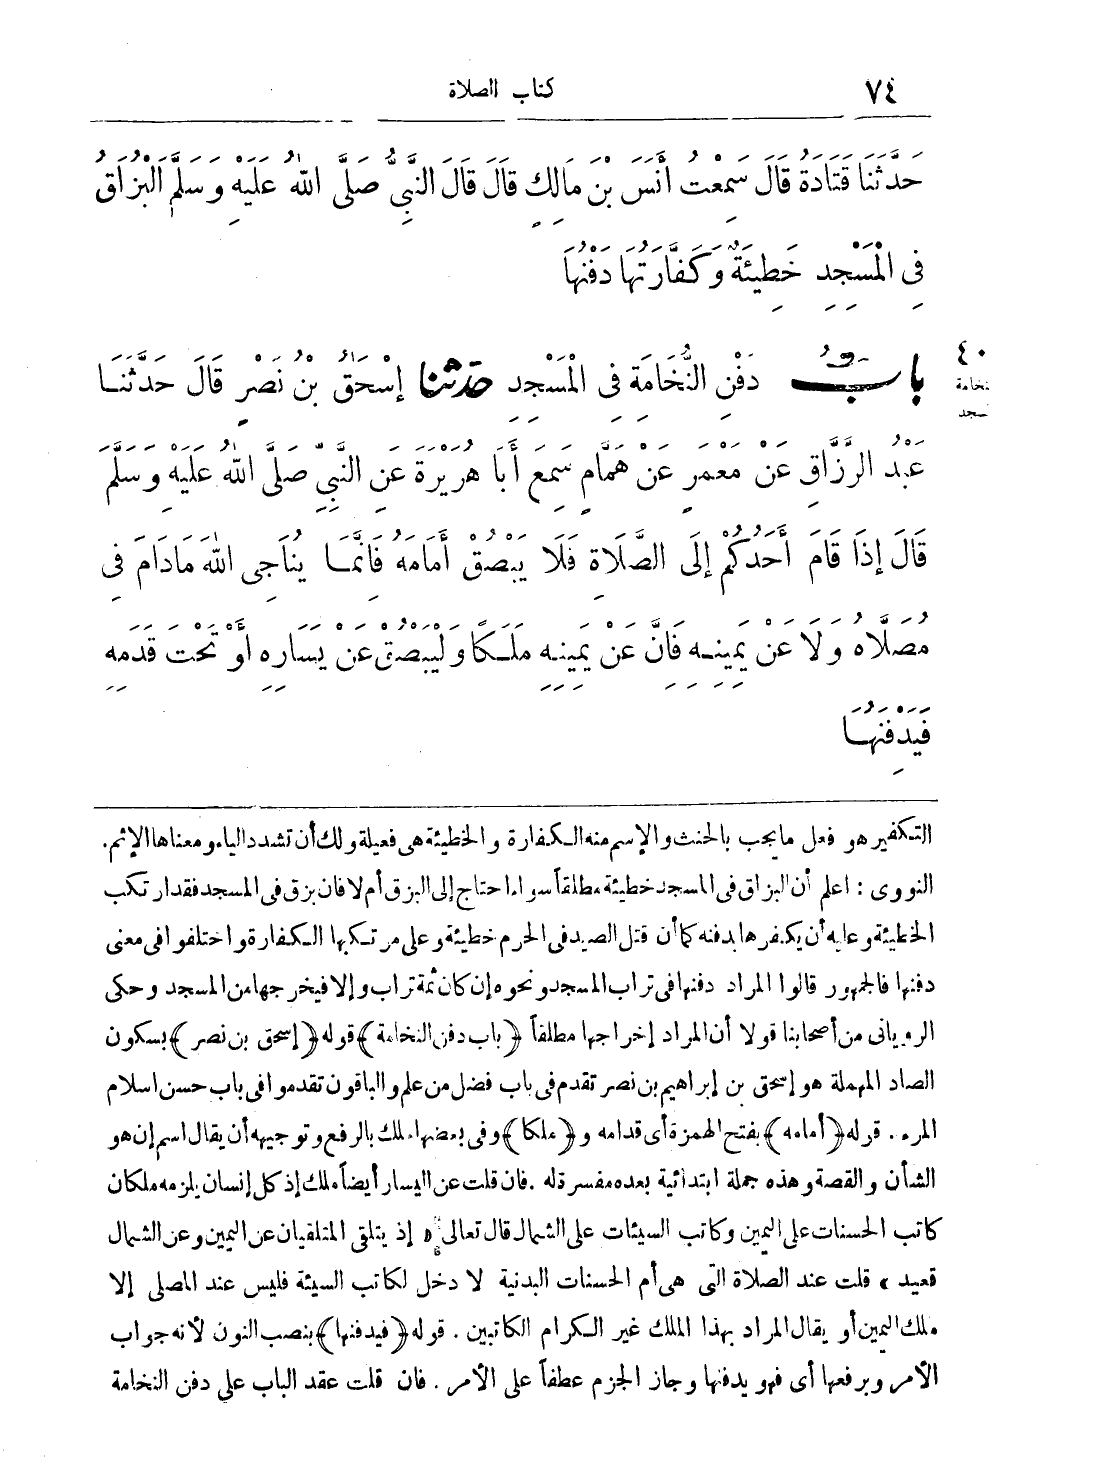 ٧٤
كتاب الصلاة
حَدَّثَنَا قَتَادَةُ قَالَ سَمِعْتُ أَنَسَ بْنَ مَالِكٍ قَالَ قَالَ النَّبِيُّ صَلَّى اللهُ عَلَيْهِ وَسَلَّمَ الْبُزَاقُ
فِى الْمَسْجِدِ خَطِيئَةٌ وَكَفَّارَتُهَا دَفْنُهَا
٤٠
نخامة
سجد
بابُ دَفْنِ النُّخَامَةِ فِى الْمَسْجِدِ حَدَّثنا إِسْحَقُ بْنُ نَصْرٍ قَالَ حَدَّثَنَا
عَبْدُ الرَّزَّاقِ عَنْ مَعْمَرٍ عَنْ هَمَّامٍ سَمِعَ أَبَا هُرَيْرَةَ عَنِ النَّبِيِّ صَلَّى اللهُ عَلَيْهِ وَسَلَّمَ
قَالَ إِذَا قَامَ أَحَدُكُمْ إِلَى الصَّلَاةِ فَلَا يَبْصُقْ أَمَامَهُ فَانَّمَا يُنَاجِى اللهَ مَادَامَ فِى
مُصَلَّاهُ وَلَا عَنْ يَمِينِهِ فَانَّ عَنْ يَمِينِهِ مَلَكًا وَلْيَبْصُقْ عَنْ يَسَارِهِ أَوْ تَحْتَ قَدَمِهِ
فَيَدْفِنُهَا
التكفير هو فعل مايجب بالحنث والإسم منه الكفارة والخطيئة هى فعيلة ولك أن تشدد الياء ومعناها الإثم.
النووى : اعلم أن البزاق فى المسجد خطيئة مطلقاً سواء احتاج إلى البزق أم لا فان بزق فى المسجد فقد ارتكب
الخطيئة وعليه أن يكفرها بدفنه كما أن قتل الصيد فى الحرم خطيئة وعلى مرتكبها الكفارة واختلفوا فى معنى
دفنها فالجمهور قالوا المراد دفنها فى تراب المسجد ونحوه إن كان ثمة تراب وإلا فيخرجها من المسجد وحكى
الرويانى من أصحابنا قولا أن المراد إخراجها مطلقاً ﴿باب دفن النخامة﴾ قوله ﴿إسحق بن نصر﴾ بسكون
الصاد المهملة هو إسحق بن إبراهيم بن نصر تقدم فى باب فضل من علم والباقون تقدموا فى باب حسن اسلام
المرء . قوله ﴿أمامه﴾ بفتح الهمزة أى قدامه و﴿ملكا﴾ وفى بعضها ملك بالرفع وتوجيهه أن يقال اسم إن هو
الشأن والقصة وهذه جملة ابتدائية بعده مفسرة له . فان قلت عن اليسار أيضاً ملك إذ كل إنسان يلزمه ملكان
كاتب الحسنات على اليمين وكاتب السيئات على الشمال قال تعالى « إذ يتلقى المتلقيان عن اليمين وعن الشمال
قعيد » قلت عند الصلاة التى هى أم الحسنات البدنية لا دخل لكاتب السيئة فليس عند المصلى إلا
ملك اليمين أو يقال المراد بهذا الملك غير الكرام الكاتبين . قوله ﴿فيدفنها﴾ بنصب النون لأنه جواب
الأمر وبرفعها أى فهو يدفنها وجاز الجزم عطفاً على الأمر . فان قلت عقد الباب على دفن النخامة